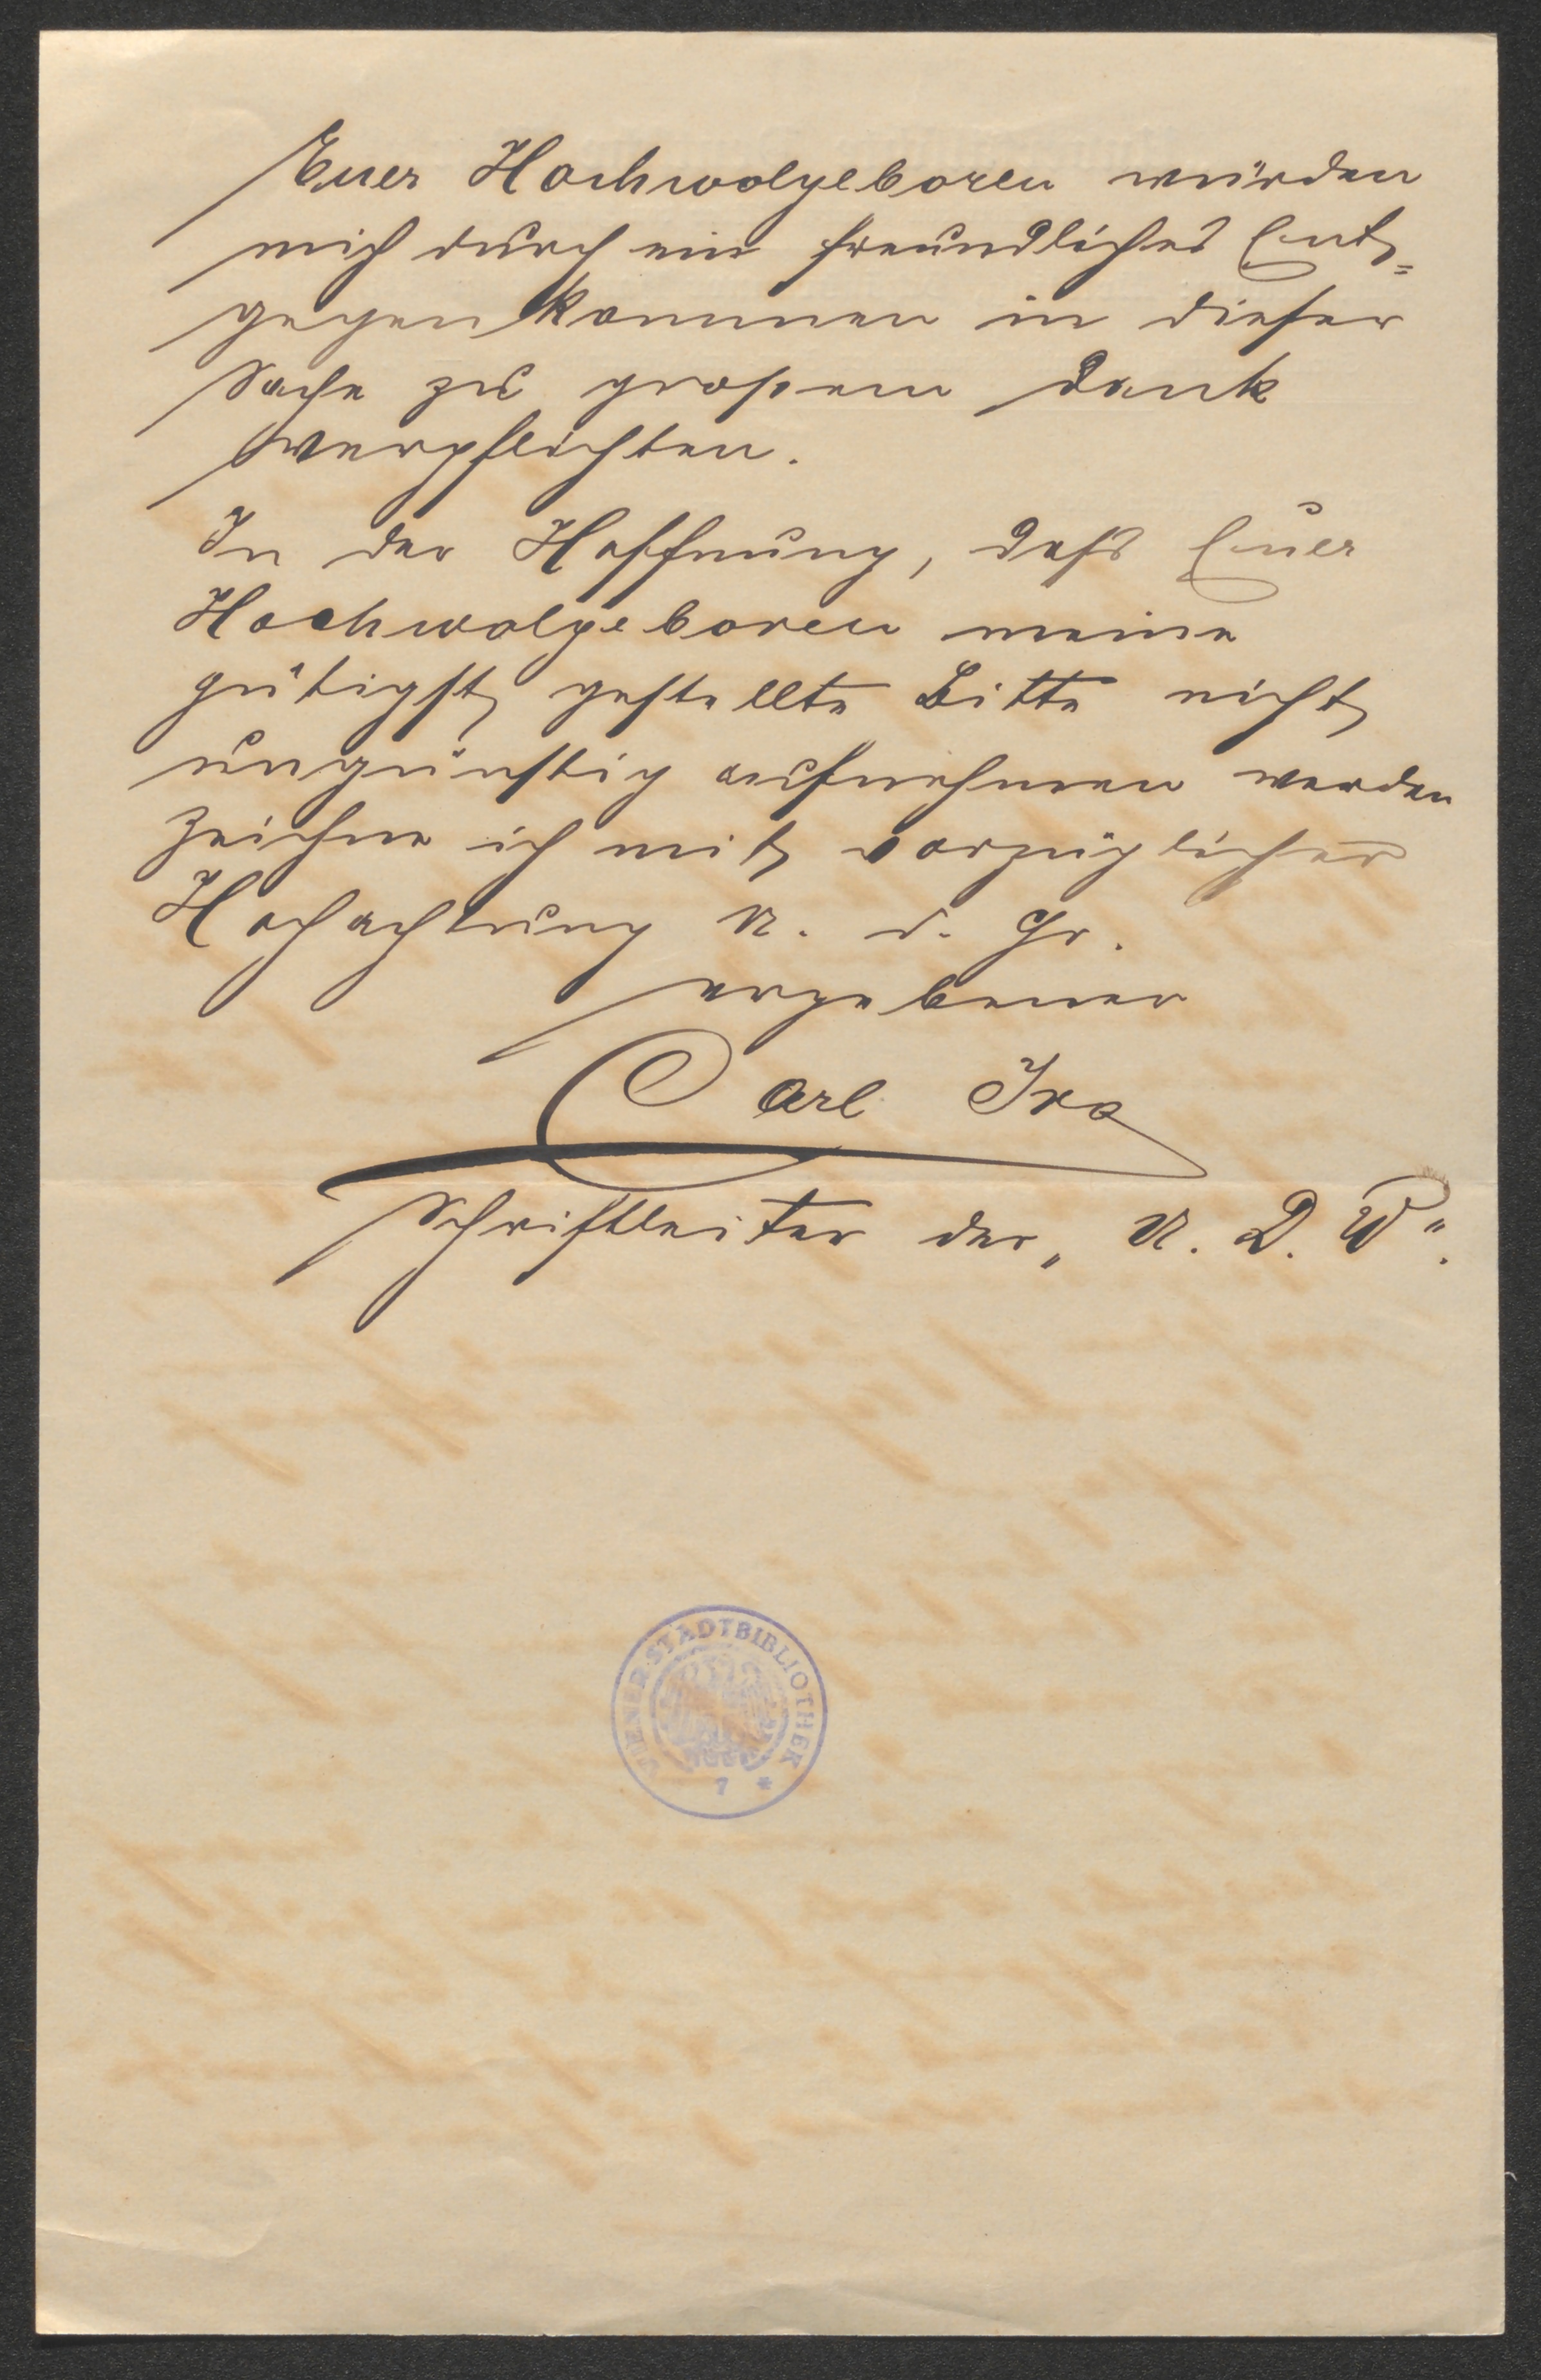 Euer Hochwolgeboren würden
mich durch ein freundliches Ent=
gegenkommen in dieser
Sache zu großem Dank
verpflichten.
In der Hoffnung, dass Euer
Hochwolgeboren meine
gütigst gestellte Bitte nicht
ungünstig aufnehmen werden
zeichne ich mit vorzüglicher
Hochachtung u. d. Gr.
ergebener
Carl Iro
Schriftleiter der „U. D. W".
WIENER STADTBIBLIOTHEK
7 *